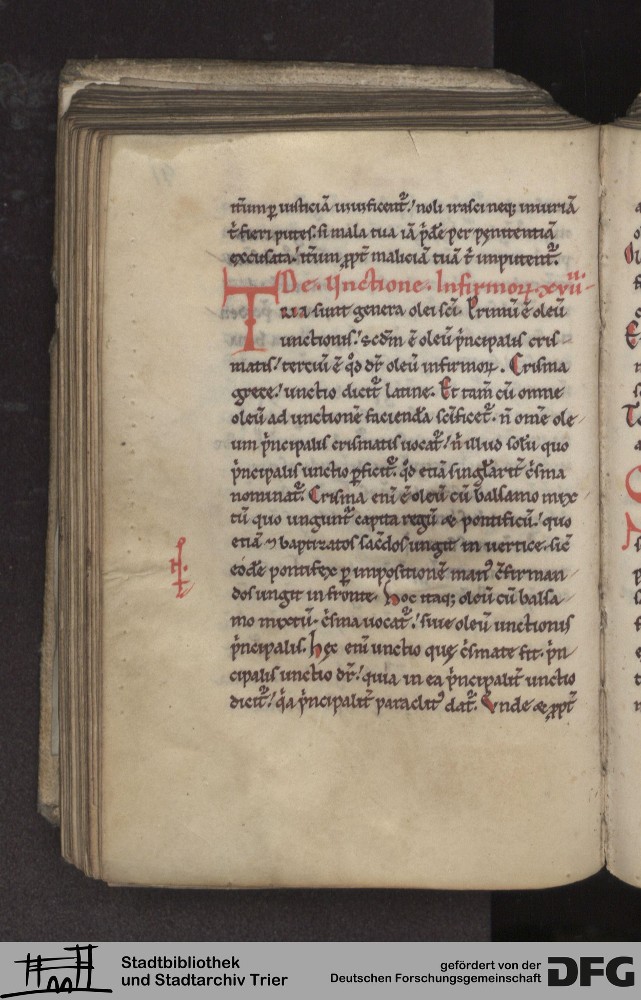 iusticiā iustificent᷑. noli irasci neq; iniuriā
t̄ fieri putes. si mala tua iā p̄de per penitentiā
excusata. ppt̄ maliciā tuā t̄ imputent᷑.
De Unctione Infirmoꝝ. xviii.
TRIA sunt genera olei sc̄i. Primū ē oleū
unctionis. & scdm̄ ē oleū p̄ncipalis cris
matis. terciū ē qd̄ dr̄ oleū infirmoꝝ. Crisma
grece. unctio dicit᷑ latine. Et tam̄ cū omne
oleū ad unctionē faciendā scificet᷑. n̄ omē ole
um p̄ncipalis crismatis uocat᷑. n̄ illud solū quo
p̄ncipalis unctio ꝑficit᷑. qd̄ etiā singlarit᷑ c̄sma
nominat᷑. Crisma eni ē oleū cū balsamo mix
tū quo ungunt᷑ capita regū & pontificū. quo
etiā baptizatos sac̄dos ungit in uertice. sic̄
eodē pontifex ꝑ impositionē man᷒ c̄firman
dos ungit in fronte. Hoc itaq; oleū cū balsa
mo mixtū. c̄sma uocat᷑. siue oleū unctionis
p̄ncipalis. Hęc eni unctio quę c̄smate fit. p̄n
cipalis unctio dr̄. quia in ea p̄ncipalit᷑ unctio
dicit᷑. q̄a p̄ncipalit᷑ paraclit᷒ dat᷑. Unde & ppt̄
Stadtbibliothek
und Stadtarchiv Trier
gefördert von der
Deutschen Forschungsgemeinschaft
DFG